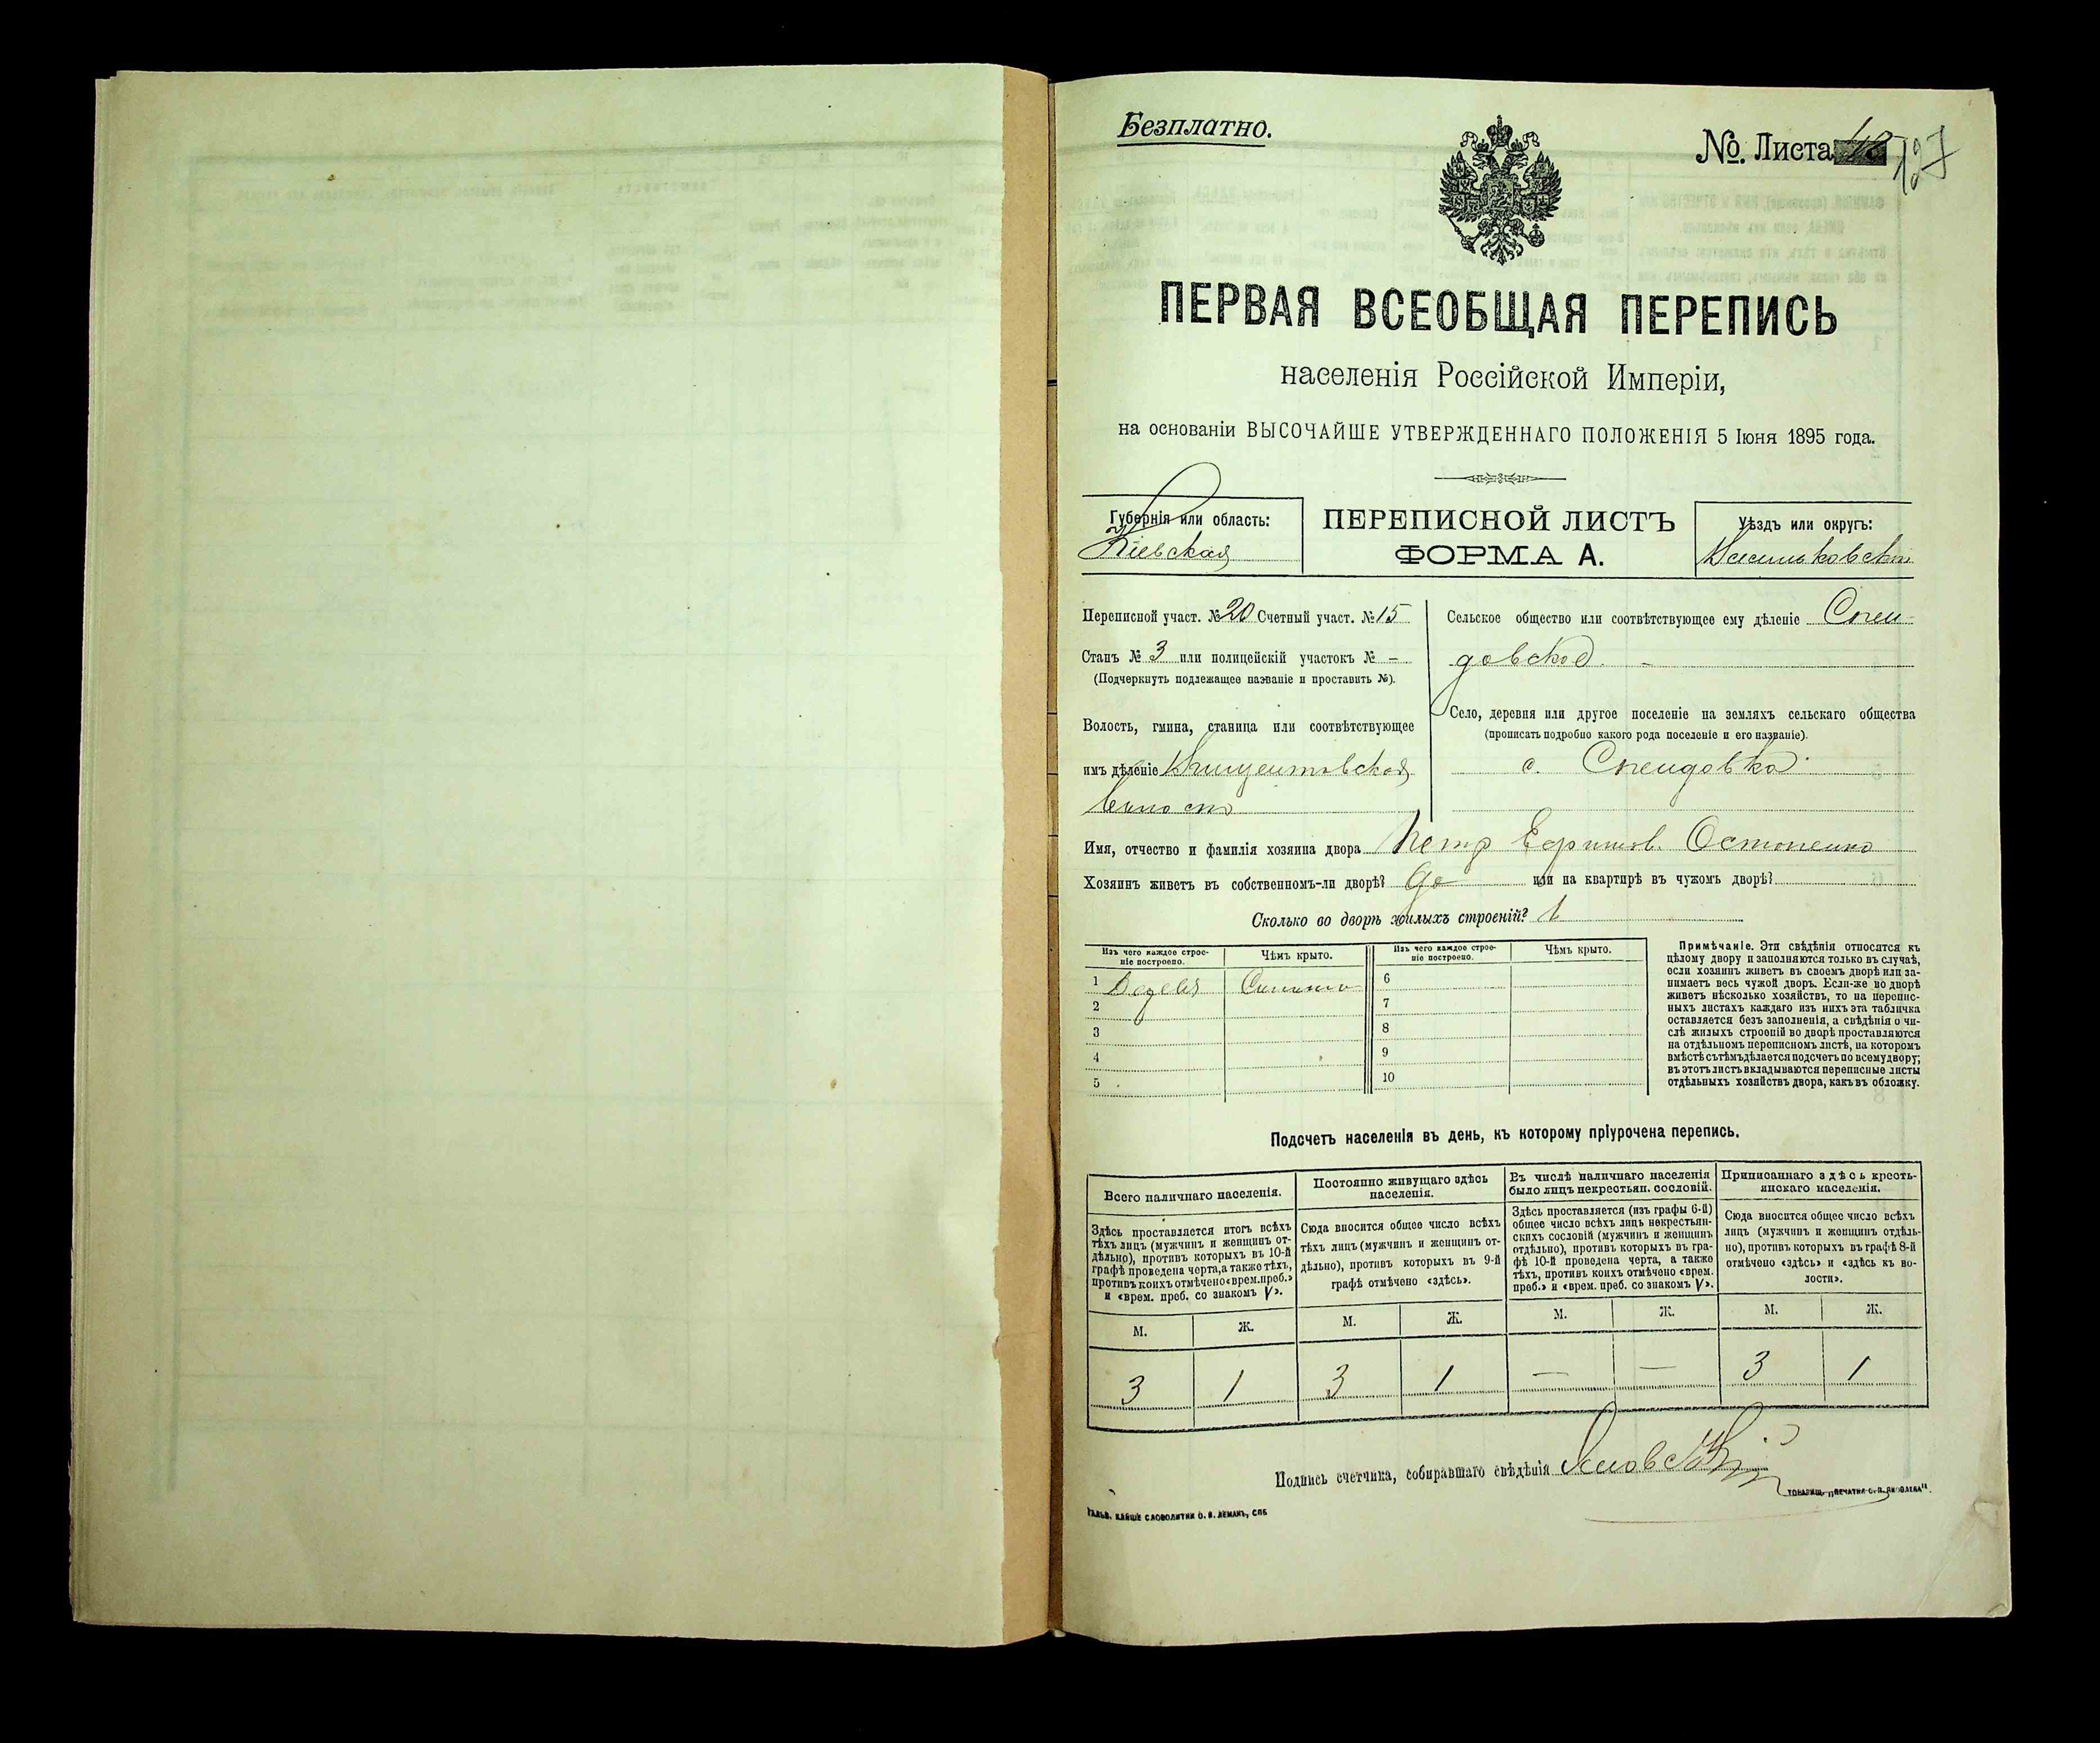 Безплатно.
№. Листа 48 127
ПЕРВАЯ ВСЕОБЩАЯ ПЕРЕПИСЬ
населенія Россійской Имперіи,
на основаніи ВЫСОЧАЙШЕ УТВЕРЖДЕННАГО ПОЛОЖЕНІЯ 5 Іюня 1895 года.
Губернія или область:
Кіевская
ПЕРЕПИСНОЙ ЛИСТЪ
ФОРМА А.
Уѣздъ или округъ:
Васильковскій
Переписной участ. № 20 Счетный участ. № 15
Станъ № 3 или полицейскій участокъ № –
(Подчеркнуть подлежащее названіе и проставить №).
Волость, гмина, станица или соотвѣтствующее
имъ дѣленіе Винцентовская
волость
Сельское общество или соотвѣтствующее ему дѣленіе Спен-
довское. –
Село, деревня или другое поселеніе на земляхъ сельскаго общества
(прописать подробно какого рода поселеніе и его названіе).
с. Спендовка
Имя, отчество и фамилія хозяина двора Петр Ефимов. Остапенко
Хозяинъ живетъ въ собственномъ-ли дворѣ? да или на квартирѣ въ чужомъ дворѣ?
Сколько во дворѣ жилыхъ строеній? 1
Изъ чего каждое строе-
ніе построено.
Чѣмъ крыто.
Изъ чего каждое строе-
ніе построено.
Чѣмъ крыто.
1 6
2 7
3 8
4 9
5 10
Примѣчаніе. Эти свѣдѣнія относятся къ
цѣлому двору и заполняются только въ случаѣ,
если хозяинъ живетъ въ своемъ дворѣ или за-
нимаетъ весь чужой дворъ. Если-же во дворѣ
живетъ нѣсколько хозяйствъ, то на перепис-
ныхъ листахъ каждаго изъ нихъ эта табличка
оставляется безъ заполненія, а свѣдѣнія о чи-
слѣ жилыхъ строеній во дворѣ проставляются
на отдѣльномъ переписномъ листѣ, на которомъ
вмѣстѣ съ тѣмъ дѣлается подсчетъ по всему двору;
въ этотъ листъ вкладываются переписные листы
отдѣльныхъ хозяйствъ двора, какъ въ обложку.
Подсчетъ населенія въ день, къ которому пріурочена перепись.
Всего наличнаго населенія.
Здѣсь проставляется итогъ всѣхъ
тѣхъ лицъ (мужчинъ и женщинъ от-
дѣльно), противъ которыхъ въ 10-й
графѣ проведена черта, а также тѣхъ,
противъ коихъ отмѣчено «врем. преб.»
и «врем. преб. со знакомъ V».
Постоянно живущаго здѣсь
населенія.
Сюда вносится общее число всѣхъ
тѣхъ лицъ (мужчинъ и женщинъ от-
дѣльно), противъ которыхъ въ 9-й
графѣ отмѣчено «здѣсь».
Въ числѣ наличнаго населенія
было лицъ некрестьян. сословій.
Здѣсь проставляется (изъ графы 6-й)
общее число всѣхъ лицъ некрестьян-
скихъ сословій (мужчинъ и женщинъ
отдѣльно), противъ которыхъ въ гра-
фѣ 10-й проведена черта, а также
тѣхъ, противъ коихъ отмѣчено «врем.
преб.» и «врем. преб. со знакомъ V».
Приписаннаго здѣсь кресть-
янскаго населенія.
Сюда вносится общее число всѣхъ
лицъ (мужчинъ и женщинъ отдѣль-
но), противъ которыхъ въ графѣ 8-й
отмѣчено «здѣсь» и «здѣсь къ во-
лости».
М. Ж. М. Ж. М. Ж. М. Ж.
3 1 3 1 — — 3 1
Подпись счетчика, собиравшаго свѣдѣнія
ТОВАРИЩ. „ПЕЧАТНЯ С. П. ЯКОВЛЕВА".
ГАЛЬВ. КЛИШЕ СЛОВОЛИТНИ О. И. ЛЕМАНЪ, СПБ.